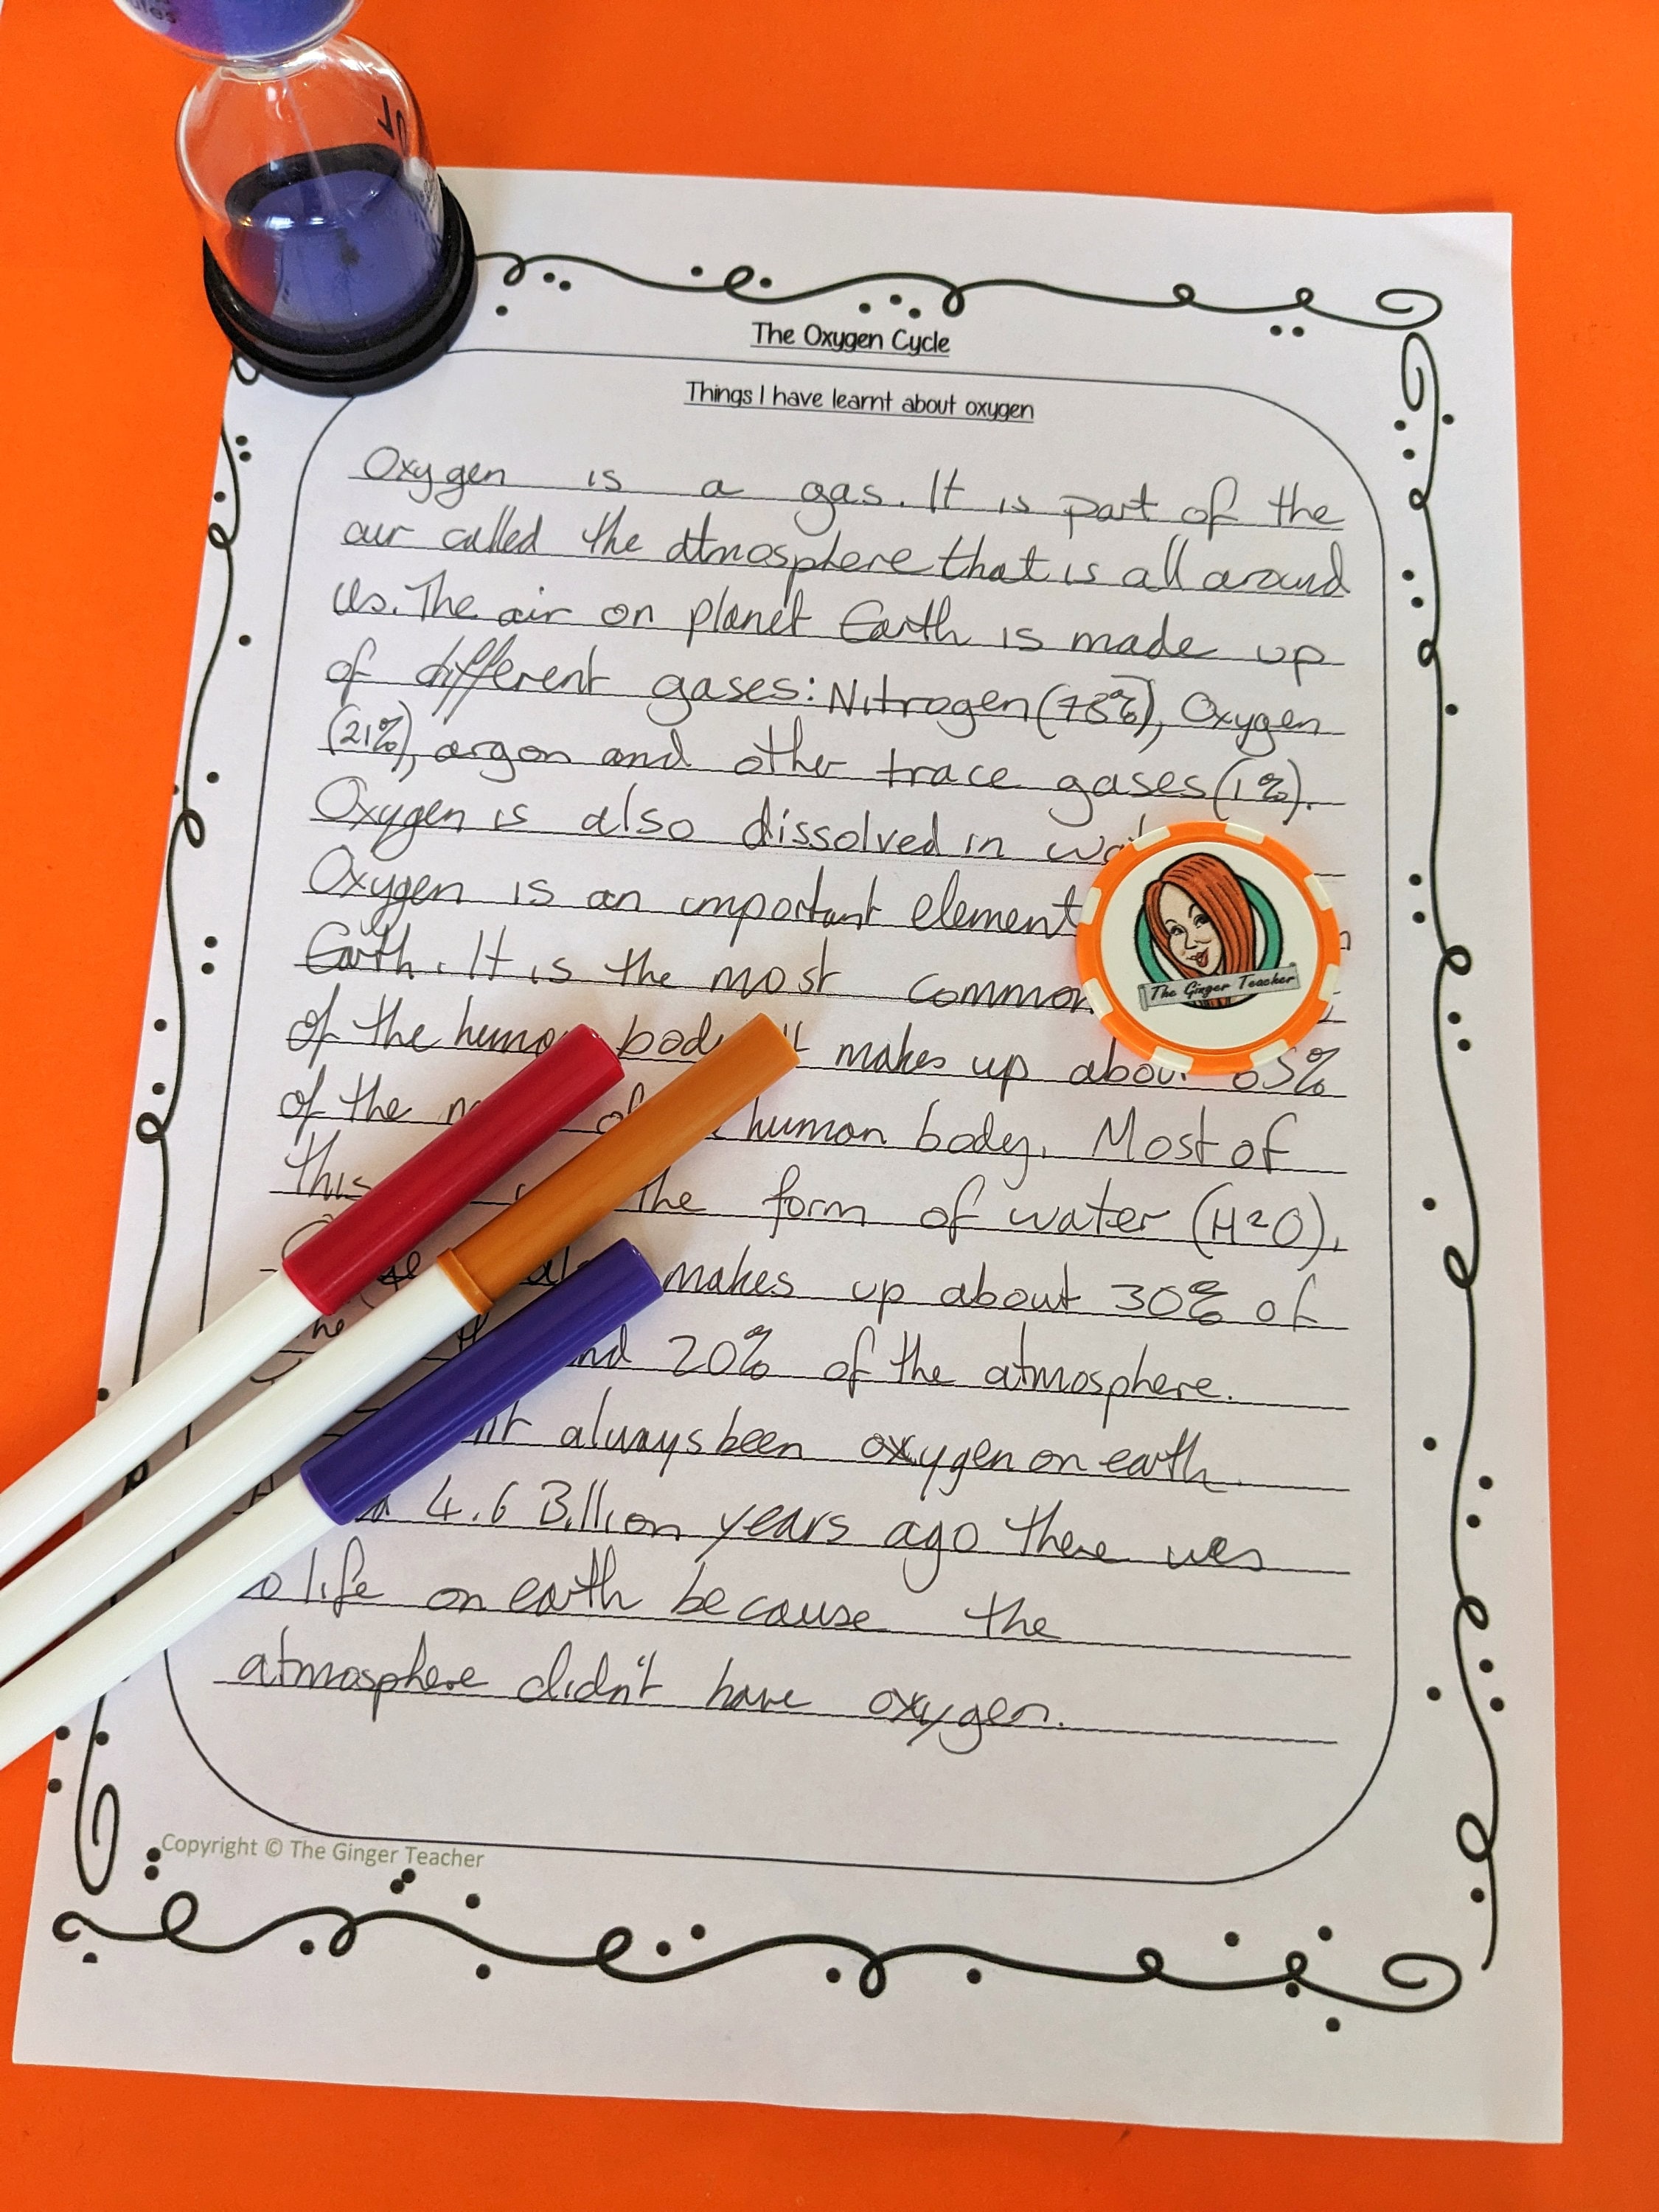 The Oxygen Cycle
Things I have learnt about oxygen
Oxygen is a gas. It is part of the
air called the atmosphere that is all around
us. The air on planet Earth is made up
of different gases: Nitrogen (78%), Oxygen
(21%), argon and other trace gases (1%).
Oxygen is also dissolved in
Oxygen is an important element
Earth. It is the most common
of the human body. It makes up about 65%
of the of human body. Most of
this the form of water (H2O).
makes up about 30% of
and 20% of the atmosphere.
always been oxygen on earth.
4.6 Billion years ago there was
life on earth because the
atmosphere didn't have oxygen.
The Ginger Teacher
Copyright © The Ginger Teacher